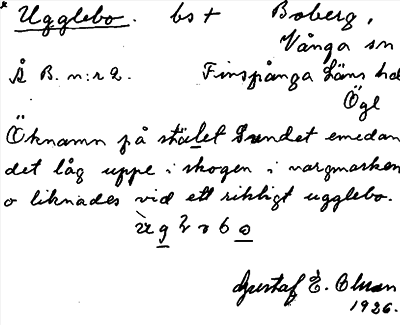 Ugglebo. bs t Boberg,
Vånga sn
Å B. n:r 2. Finspånga Läns hd
Ögl
Öknamn på stället Sundet emedan
det låg uppe i skogen i vargmarken
o liknades vid ett riktigt ugglebo.
Gustaf E. Olsson
1926.